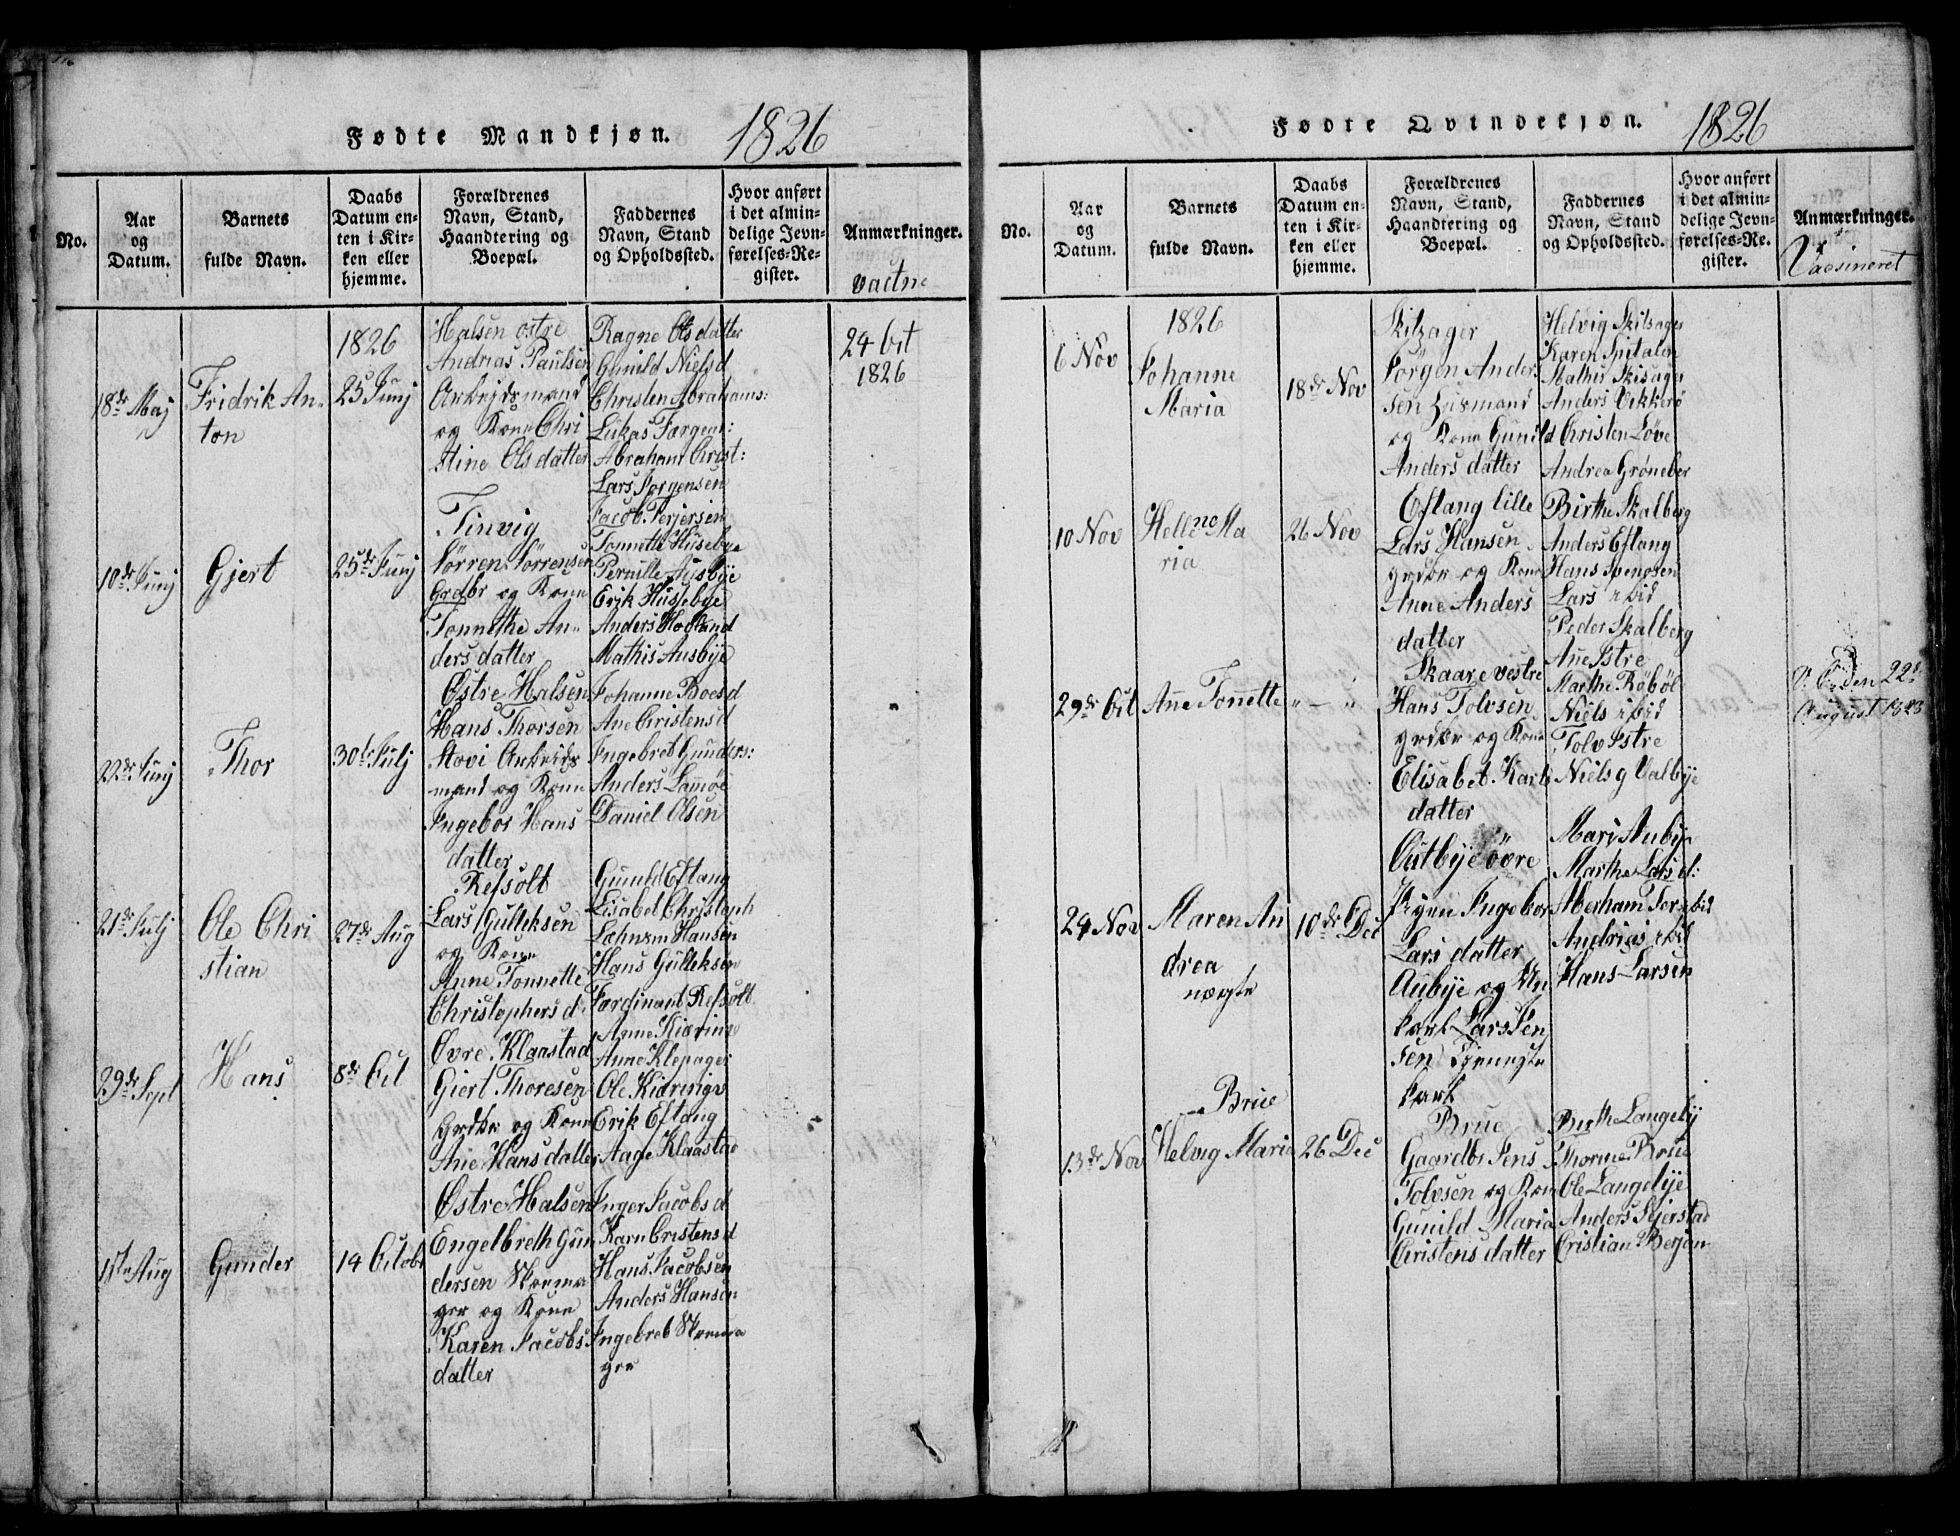 Fødte Mandkjøn. 1826
No.
Aar og Datum.
Barnets fulde Navn.
Daabs Datum enten i Kirken eller hjemme.
Forældrenes Navn, Stand, Haandtering og Boepæl.
Faddernes Navn, Stand og Opholdssted.
Hvor anført i det almindelige Jevnførelses-Register.
Anmærkninger.
18de Maj
Fridrik An-
ton
1826
25 Junj
Halsen østre
Andrias Paulsen
Arbeidsmand
og Kone Chri
stine Olsdatter
Ragne Olsdatter
Gunild Nielsd
Christen Abrahams:
Lukas Fargem:
Abraham Crist:
Lars Jorgensen
24 Oct
1826
10de Junj
Gjert
25de Junj
Tinvig
Sørren Sørrensen
Grdbr og Kone
Tonnethe An-
ders datter
Jacob Terjersen
Tonnette Husebye
Pernille Ausbye
Erik Hussebye
Anders Hovland
Mathis Ausbye
Junj
Thor
30te Julj
Østre Halsen
Hans Thorsen
Hovi Arbeids
mand og Kone
Ingebor Hans
datter
Johanne Boesd
Ane Cristensd
Ingebret Gunders:
Anders Lamøe
Daniel Olsen
21de Julj
Ole Chri
stian
27de Aug
Refsolt
Lars Gulleksen
og Kone
Anne Tonnette
Christophers d:
Gunild Eftang
Lisabet Christoph
Hansen
Hans Gulleksen
Ferdinant Refsolt
29de Sept
Hans
8de Oct
Øvre Klaastad
Giert Thoresen
Grdbr og Kone
Ane Hansdatter
Anne Kiæringe
Anne Klepager
Ole Kiæringe
Erik Eftang
Aage Klaastad
11te Aug
Gunder
14 Octobr
Østre Halsen
Engelbreth Gun
dersen Skoema
ger og Kone
Karen Jacobs
datter
Inger Jacobsd
Karn Cristensd
Hans Jacobsen
Anders Hansen
Ingebret Skoema
ger
Fødte Qvindekjøn. 1826
No.
Aar og Datum.
Barnets fulde Navn.
Daabs Datum enten i Kirken eller hjemme.
Forældrenes Navn, Stand, Haandtering og Boepæl.
Faddernes Navn, Stand og Opholdssted.
Hvor anført i det almindelige Jevnførelses-Register.
Anmærkninger.
Vacsineret
6 Nov
1826
Johanne
Maria
18de Nov
Skilsager
Jørgen Ander
sen Husmand
og Kone Gunild
Anders datter
Helvig Skilsager
Karen Spitalen
Mathis Skisager
Anders Vekkerø
Cristen Løve
Andrea Grøneber
10 Nov
Hellene Ma
ria
26 Nov
Eftang lille
Lars Hansen
grdbr og Kone
Anne Anders
datter
Birthe Skalberg
Anders Eftang
Hans Ipengsen
Lars ibid
Peder Skalberg
29de Oct
Ane Tonette
" — "
Skaare vestre
Hans Tolvsen
grdbr og Kone
Elisabet Karls
datter
Ane Istre
Marthe Røbøl
Niels ibid
Tolv Istre
Niels g Valbye
22de
August 1828
24 Nov
Maren An
drea
uægte
10de Dec
Outbye øvre
Pigen Ingebor
Lars datter
Aubye og Un
karl Lars Jen
sen Tjeneste
karl
Mari Aubye
Marthe Larsd:
Aberham Tor ibid
Andrias ibid
Hans Larsen
13de Nov
Brue
Helvig Maria
26 Dec
Brue
Gaardbr Jens
Tolvsen og Kone
Gunild Maria
Cristens datter
Birthe Langebÿ
Thorine Brue
Ole Langebye
Anders Sejerstad
Cristian Bergan